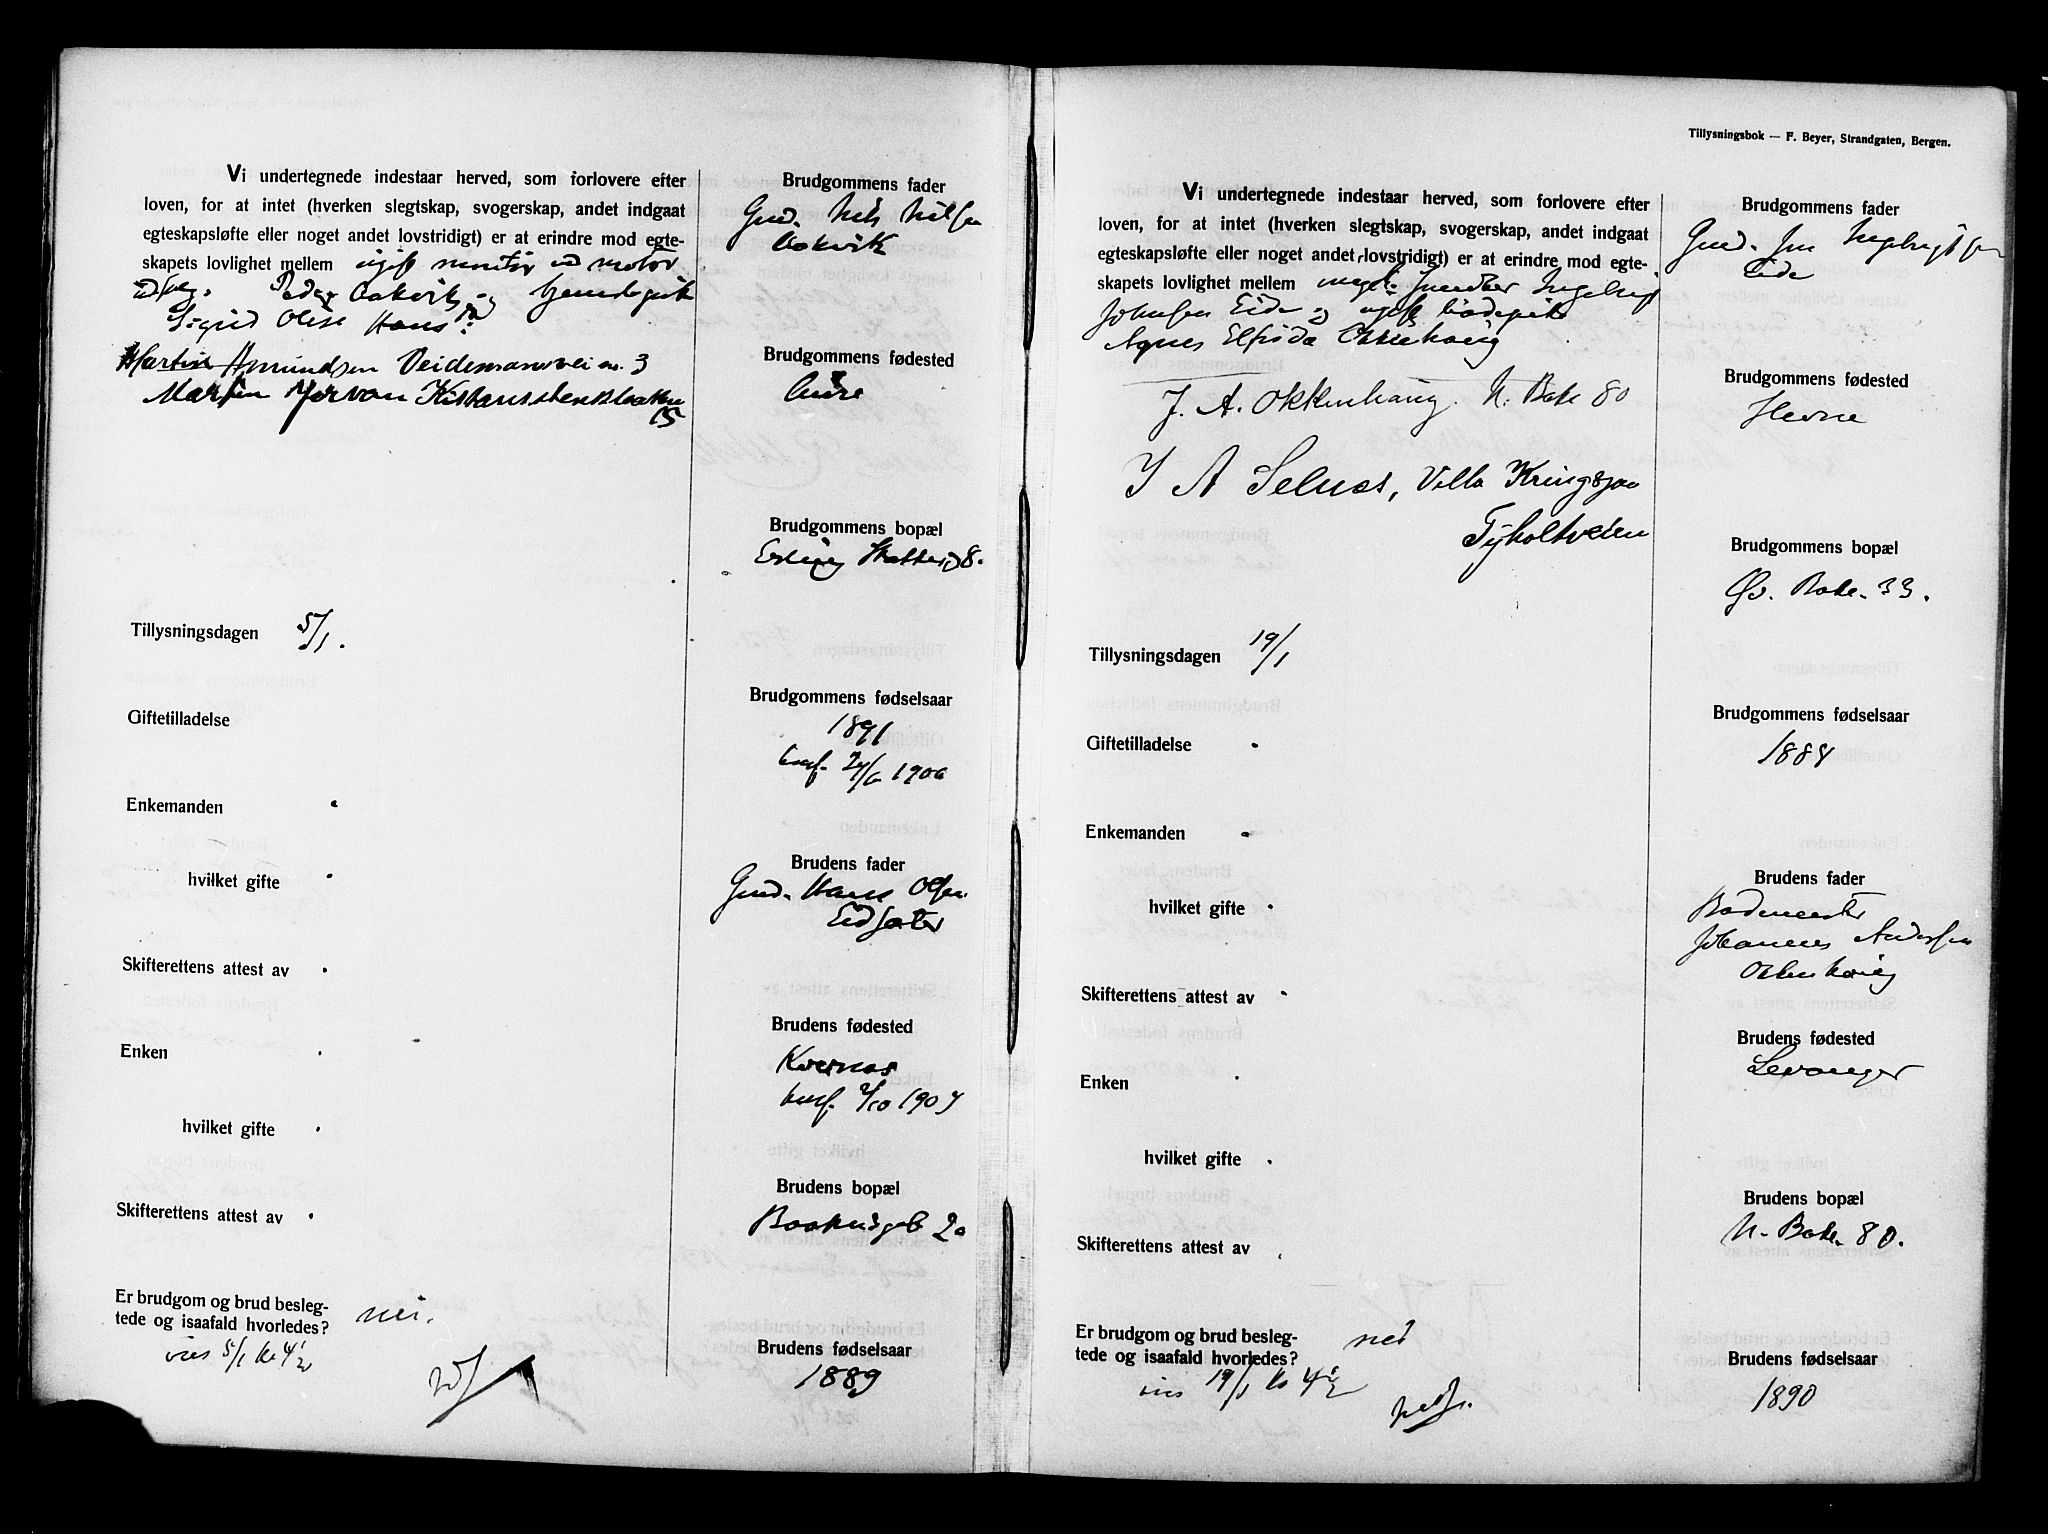 Vi undertegnede indestaar herved, som forlovere efter
loven, for at intet (hverken slegtskap, svogerskap, andet indgaat
egteskapsløfte eller noget andet lovstridigt) er at erindre mod egte-
skapets lovlighet mellem ugift montør ved motor
Peder Aakvik og hjemdøpik
Sigrid Olise Hans
Martin Amundsen Veidemansvei nr. 3
Martin
15
Tillysningsdagen 5/1.
Giftetilladelse
Enkemanden
hvilket gifte
Skifterettens attest av
Enken
hvilket gifte
Skifterettens attest av
Er brudgom og brud besleg-
tede og isaafald hvorledes? nei.
vies 5/1 kl 4½
Brudgommens fader
Gmd. Nils Nilsen
Aakvik
Brudgommens fødested
Brudgommens bopæl
Erling Skakkes g 8.
Brudgommens fødselsaar
1891
1906
Brudens fader
Gmd. Hans Olsen
Eidsæter
Brudens fødested
Kvernæs
konf. 2/10 1904
Brudens bopæl
Baakhusgt 2a
Brudens fødselsaar
1889
Tillysningsbok — F. Beyer, Strandgaten, Bergen.
Vi undertegnede indestaar herved, som forlovere efter
loven, for at intet (hverken slegtskap, svogerskap, andet indgaat
egteskapsløfte eller noget andet lovstridigt) er at erindre mod egte-
skapets lovlighet mellem ungk. snedker Ingebrigt
Johnsen Eide og ugift
Agnes Elfrida Okkenhaug
J. A. Okkenhaug. N. Bakl 80
J A Selnæs, Villa Kringsjaa
Tyholtveien
Tillysningsdagen 19/1
Giftetilladelse
Enkemanden
hvilket gifte
Skifterettens attest av
Enken
hvilket gifte
Skifterettens attest av
Er brudgom og brud besleg-
tede og isaafald hvorledes? nei
vies 19/1 kl 4½
Brudgommens fader
Gmd. Jon Ingebrigtsen
Eide
Brudgommens fødested
Hevne
Brudgommens bopæl
Øv. Bakl. 33.
Brudgommens fødselsaar
1888
Brudens fader
Bademester
Johannes Andersen
Okkenhaug
Brudens fødested
Levanger
Brudens bopæl
N. Bakl. 80.
Brudens fødselsaar
1890